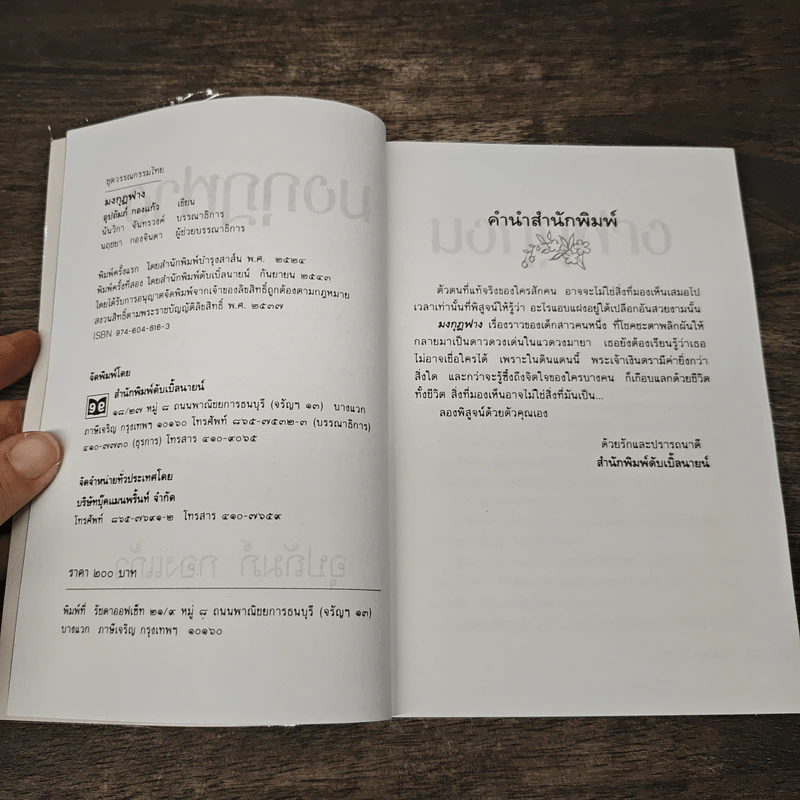 ชุดวรรณกรรมไทย
มงกุฎฟาง
อุปถัมภ์ กองแก้ว เขียน
นันวิกา จันทรวงค์ บรรณาธิการ
นฤชยา กองจินดา ผู้ช่วยบรรณาธิการ
พิมพ์ครั้งแรก โดยสำนักพิมพ์บำรุงสาส์น พ.ศ. ๒๕๒๔
พิมพ์ครั้งที่สอง โดยสำนักพิมพ์ดับเบิ้ลนายน์ กันยายน ๒๕๔๓
โดยได้รับการอนุญาตจัดพิมพ์จากเจ้าของลิขสิทธิ์ถูกต้องตามกฎหมาย
สงวนสิทธิ์ตามพระราชบัญญัติลิขสิทธิ์ พ.ศ. ๒๕๓๗
ISBN 974-604-816-3
จัดพิมพ์โดย
สำนักพิมพ์ดับเบิ้ลนายน์
๑๘/๒๗ หมู่ ๘ ถนนพาณิชยการธนบุรี (จรัญฯ ๑๓) บางแวก
ภาษีเจริญ กรุงเทพฯ ๑๐๑๖๐ โทรศัพท์ ๘๖๕-๗๕๓๒-๓ (บรรณาธิการ)
๔๑๐-๗๗๓๐ (ธุรการ) โทรสาร ๔๑๐-๙๐๖๕
จัดจำหน่ายทั่วประเทศโดย
บริษัทบุ๊คแมนพริ้นท์ จำกัด
โทรศัพท์ ๘๖๕-๗๖๙๑-๒ โทรสาร ๔๑๐-๗๖๕๙
ราคา ๒๐๐ บาท
พิมพ์ที่ รัชดาออฟเซ็ท ๒๑/๙ หมู่ ๘ ถนนพาณิชยการธนบุรี (จรัญฯ ๑๓)
บางแวก ภาษีเจริญ กรุงเทพฯ ๑๐๑๖๐
คำนำสำนักพิมพ์
ตัวตนที่แท้จริงของใครสักคน อาจจะไม่ใช่สิ่งที่มองเห็นเสมอไป
เวลาเท่านั้นที่พิสูจน์ให้รู้ว่า อะไรแอบแฝงอยู่ใต้เปลือกอันสวยงามนั้น
มงกุฎฟาง เรื่องราวของเด็กสาวคนหนึ่ง ที่โชคชะตาพลิกผันให้
กลายมาเป็นดาวดวงเด่นในแวดวงมายา เธอยังต้องเรียนรู้ว่าเธอ
ไม่อาจเชื่อใครได้ เพราะในดินแดนนี้ พระเจ้าเงินตรามีค่ายิ่งกว่า
สิ่งใด และกว่าจะรู้ซึ้งถึงจิตใจของใครบางคน ก็เกือบแลกด้วยชีวิต
ทั้งชีวิต สิ่งที่มองเห็นอาจไม่ใช่สิ่งที่มันเป็น...
ลองพิสูจน์ด้วยตัวคุณเอง
ด้วยรักและปรารถนาดี
สำนักพิมพ์ดับเบิ้ลนายน์